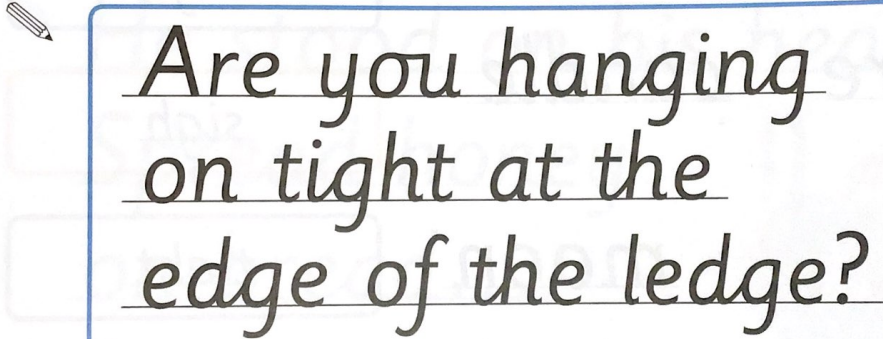 Are you hanging
on tight at the
edge of the ledge?